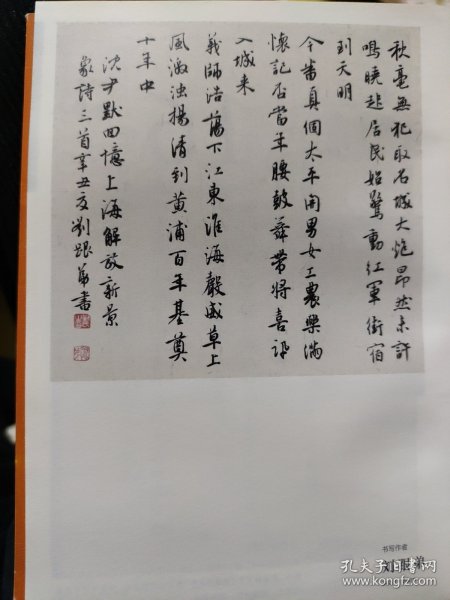 秋毫無犯取名城大炮昂然未許
鳴曉起居民始驚動紅軍街宿
到天明
今番真個太平開男女工農樂滿
懷記否當年腰鼓舞帶將喜訊
入城来
義師浩蕩下江東淮海聲威草上
風激浊揚清到黄浦百年基奠
十年中
沈尹默回憶上海解放新景
象詩三首辛丑夏劉跟華書
书写作者
孔夫子旧书网
www.kongfz.com